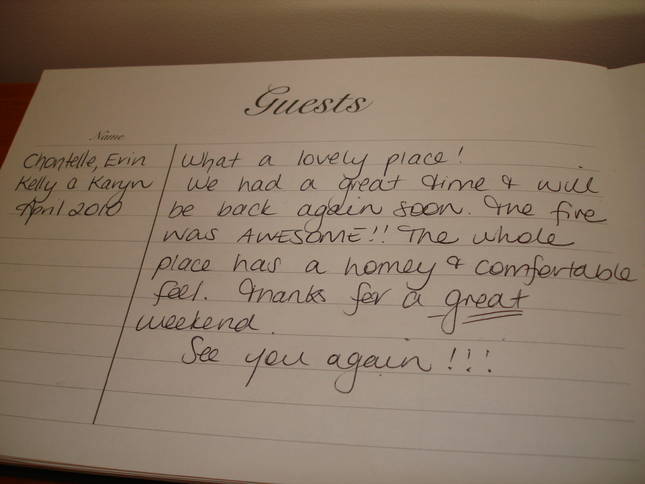 Guests
Name
Chantelle, Erin
Kelly & Karyn
April 2010
What a lovely place!
We had a great time & will
be back again soon. The fire
was AWESOME!! The whole
place has a homey & comfortable
feel. Thanks for a great
weekend.
See you again!!!